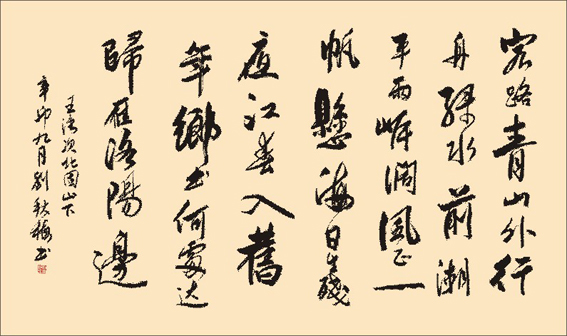 客路青山外行
舟綠水前潮
平兩岸闊風正一
帆懸海日生殘
夜江春入舊
年鄉書何處達
歸雁洛陽邊
王灣次北固山下
辛卯九月劉秋梅书